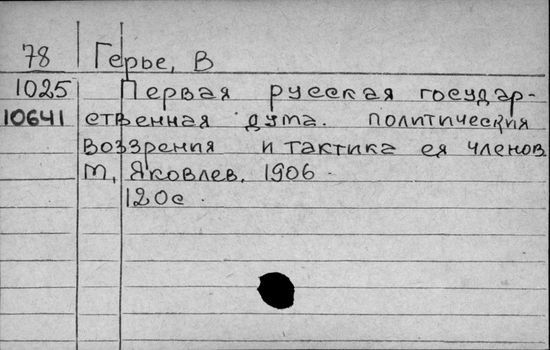 78 Герье, В
1025 Первая русская государ-
10641 ственная дума. политические
воззрения и тактика ея членов.
М, Яковлев, 1906.
120с.